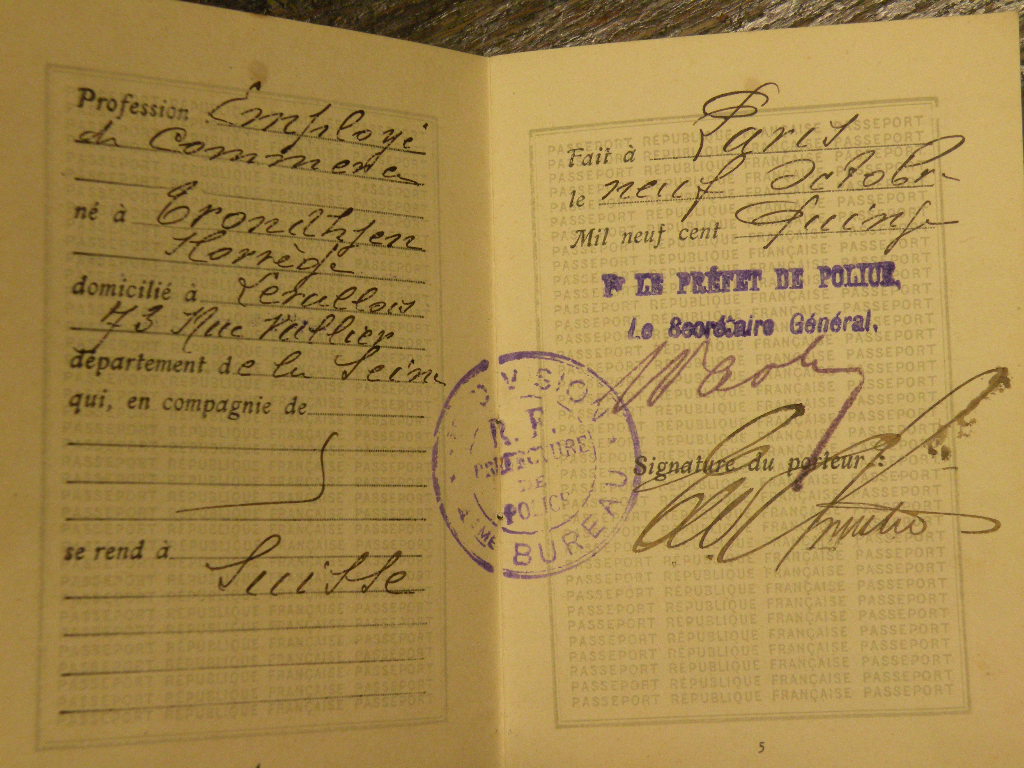 Profession Employé
de Commerce
né à Trondhjen
Norvège
domicilié à Levallois
73 Rue Vallier
département de la Seine
qui, en compagnie de
se rend à
Suisse
Fait à Paris
le neuf Octobre
Mil neuf cent Quinze
Pr LE PRÉFET DE POLICE,
Le Secrétaire Général,
Signature du porteur :
DIVISION
R. F.
PRÉFECTURE
DE
POLICE
4ME BUREAU
PASSEPORT RÉPUBLIQUE FRANÇAISE PASSEPORT
5